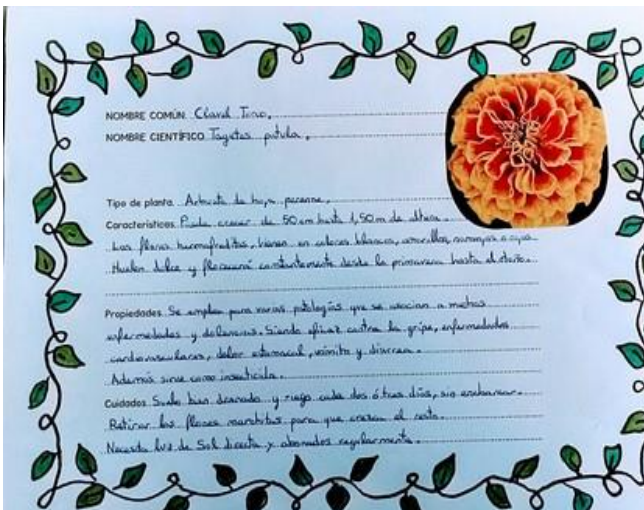 NOMBRE COMÚN Clavel Turco.
NOMBRE CIENTÍFICO Tagetes patula.
Tipo de planta. Arbusto de hoja perenne.
Características Puede crecer de 50 cm hasta 1,50 m de altura.
Las flores hermafroditas, vienen en colores blancos, amarillos, naranjas o rojos.
Huelen dulce y florecerá constantemente desde la primavera hasta el otoño.
Propiedades Se emplea para varias patologías que se asocian a muchas
enfermedades y dolencias. Siendo eficaz contra la gripe, enfermedades
cardiovasculares, dolor estomacal, vómito y diarrea.
Además sirve como insecticida.
Cuidados Suelo bien drenado y riego cada dos ó tres días, sin encharcar.
Retirar las flores marchitas para que crezca el resto.
Necesita luz de Sol directa y abonados regularmente.